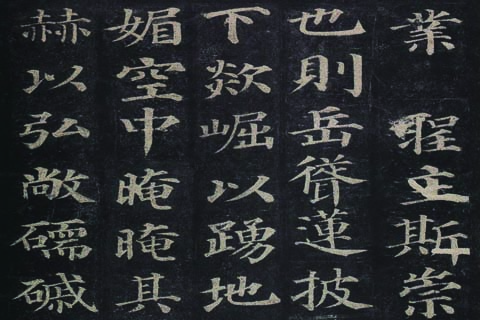 業聖主斯崇
也則岳聳蓮披
下欻崛以踴地
媚空中晻晻其
赫以弘敞礝磩